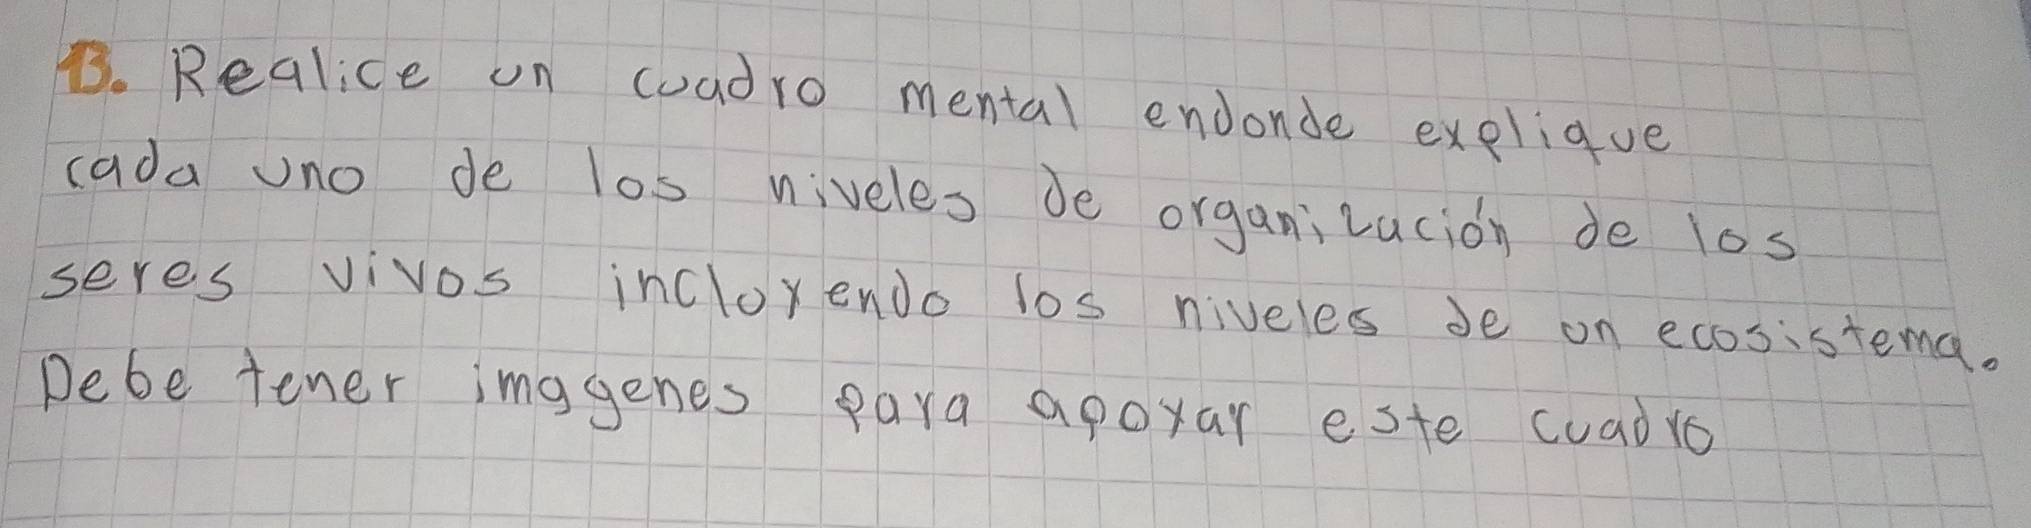 13. Realice un cuadro mental endonde explique
cada uno de los niveles de organización de los
seres vivos incluyendo los niveles de un ecosistema.
Debe tener imagenes para apoyar este cuadro